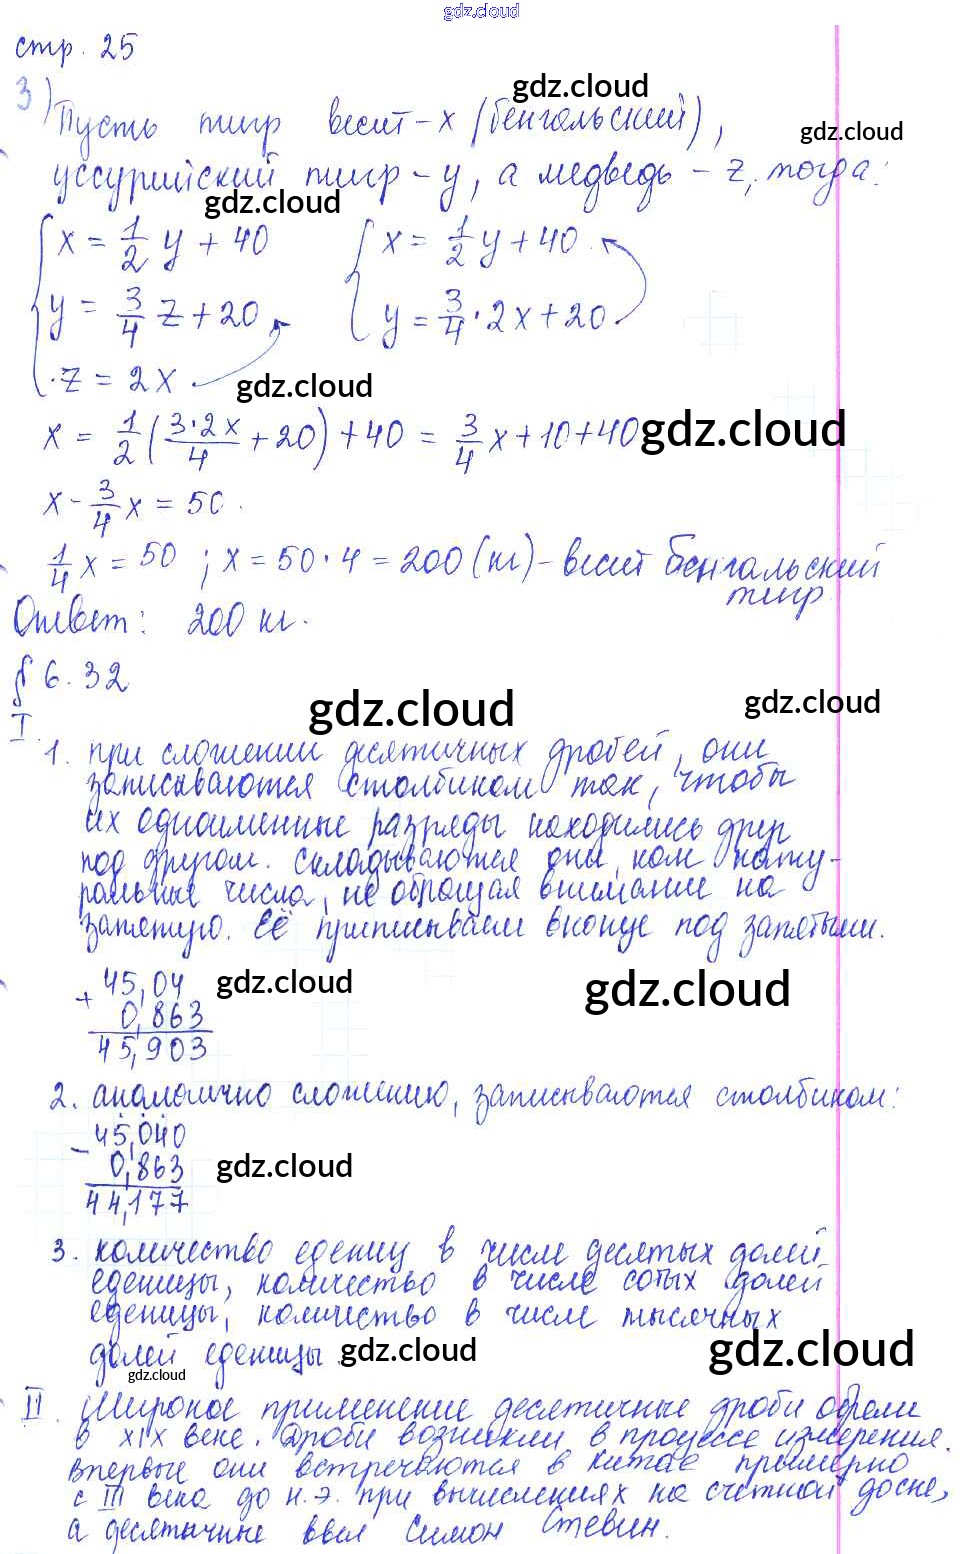 gdz.cloud
стр. 25
gdz.cloud
3) Пусть тигр весит - x (бенгольский),
gdz.cloud
уссурийский тигр - y, а медведь - z, тогда:
gdz.cloud
x = 1/2 y + 40    x = 1/2 y + 40
y = 3/4 z + 20    y = 3/4 · 2x + 20
z = 2x
gdz.cloud
x = 1/2 (3·2x/4 + 20) + 40 = 3/4 x + 10 + 40
gdz.cloud
x - 3/4 x = 50
1/4 x = 50 ; x = 50 · 4 = 200 (кг) - весит Бенгальский
тигр.
Ответ: 200 кг.
§ 6.32
gdz.cloud gdz.cloud
I
1. при сложении десятичных дробей, они
записываются столбиком так, чтобы
их одноименные разряды находились друг
под другом. Складываются они, как нату-
ральные числа, не обращая внимание на
запятую. Её приписываем вконце под запятыми.
+ 45,04
gdz.cloud gdz.cloud
0,863
45,903
2. аналогично сложению, записываются столбиком:
- 45,040
0,863
gdz.cloud
44,177
3. количество едениц в числе десятых долей
еденицы, количество в числе сотых долей
еденицы, количество в числе тысячных
долей еденицы.
gdz.cloud gdz.cloud
gdz.cloud
II. Широкое применение десятичные дроби обрели
в XIX веке. Дроби возникли в процессе измерения.
Впервые они встречаются в Китае примерно
с III века до н.э. при вычислениях на счетной доске,
а десятичные ввел Симон Стевин.